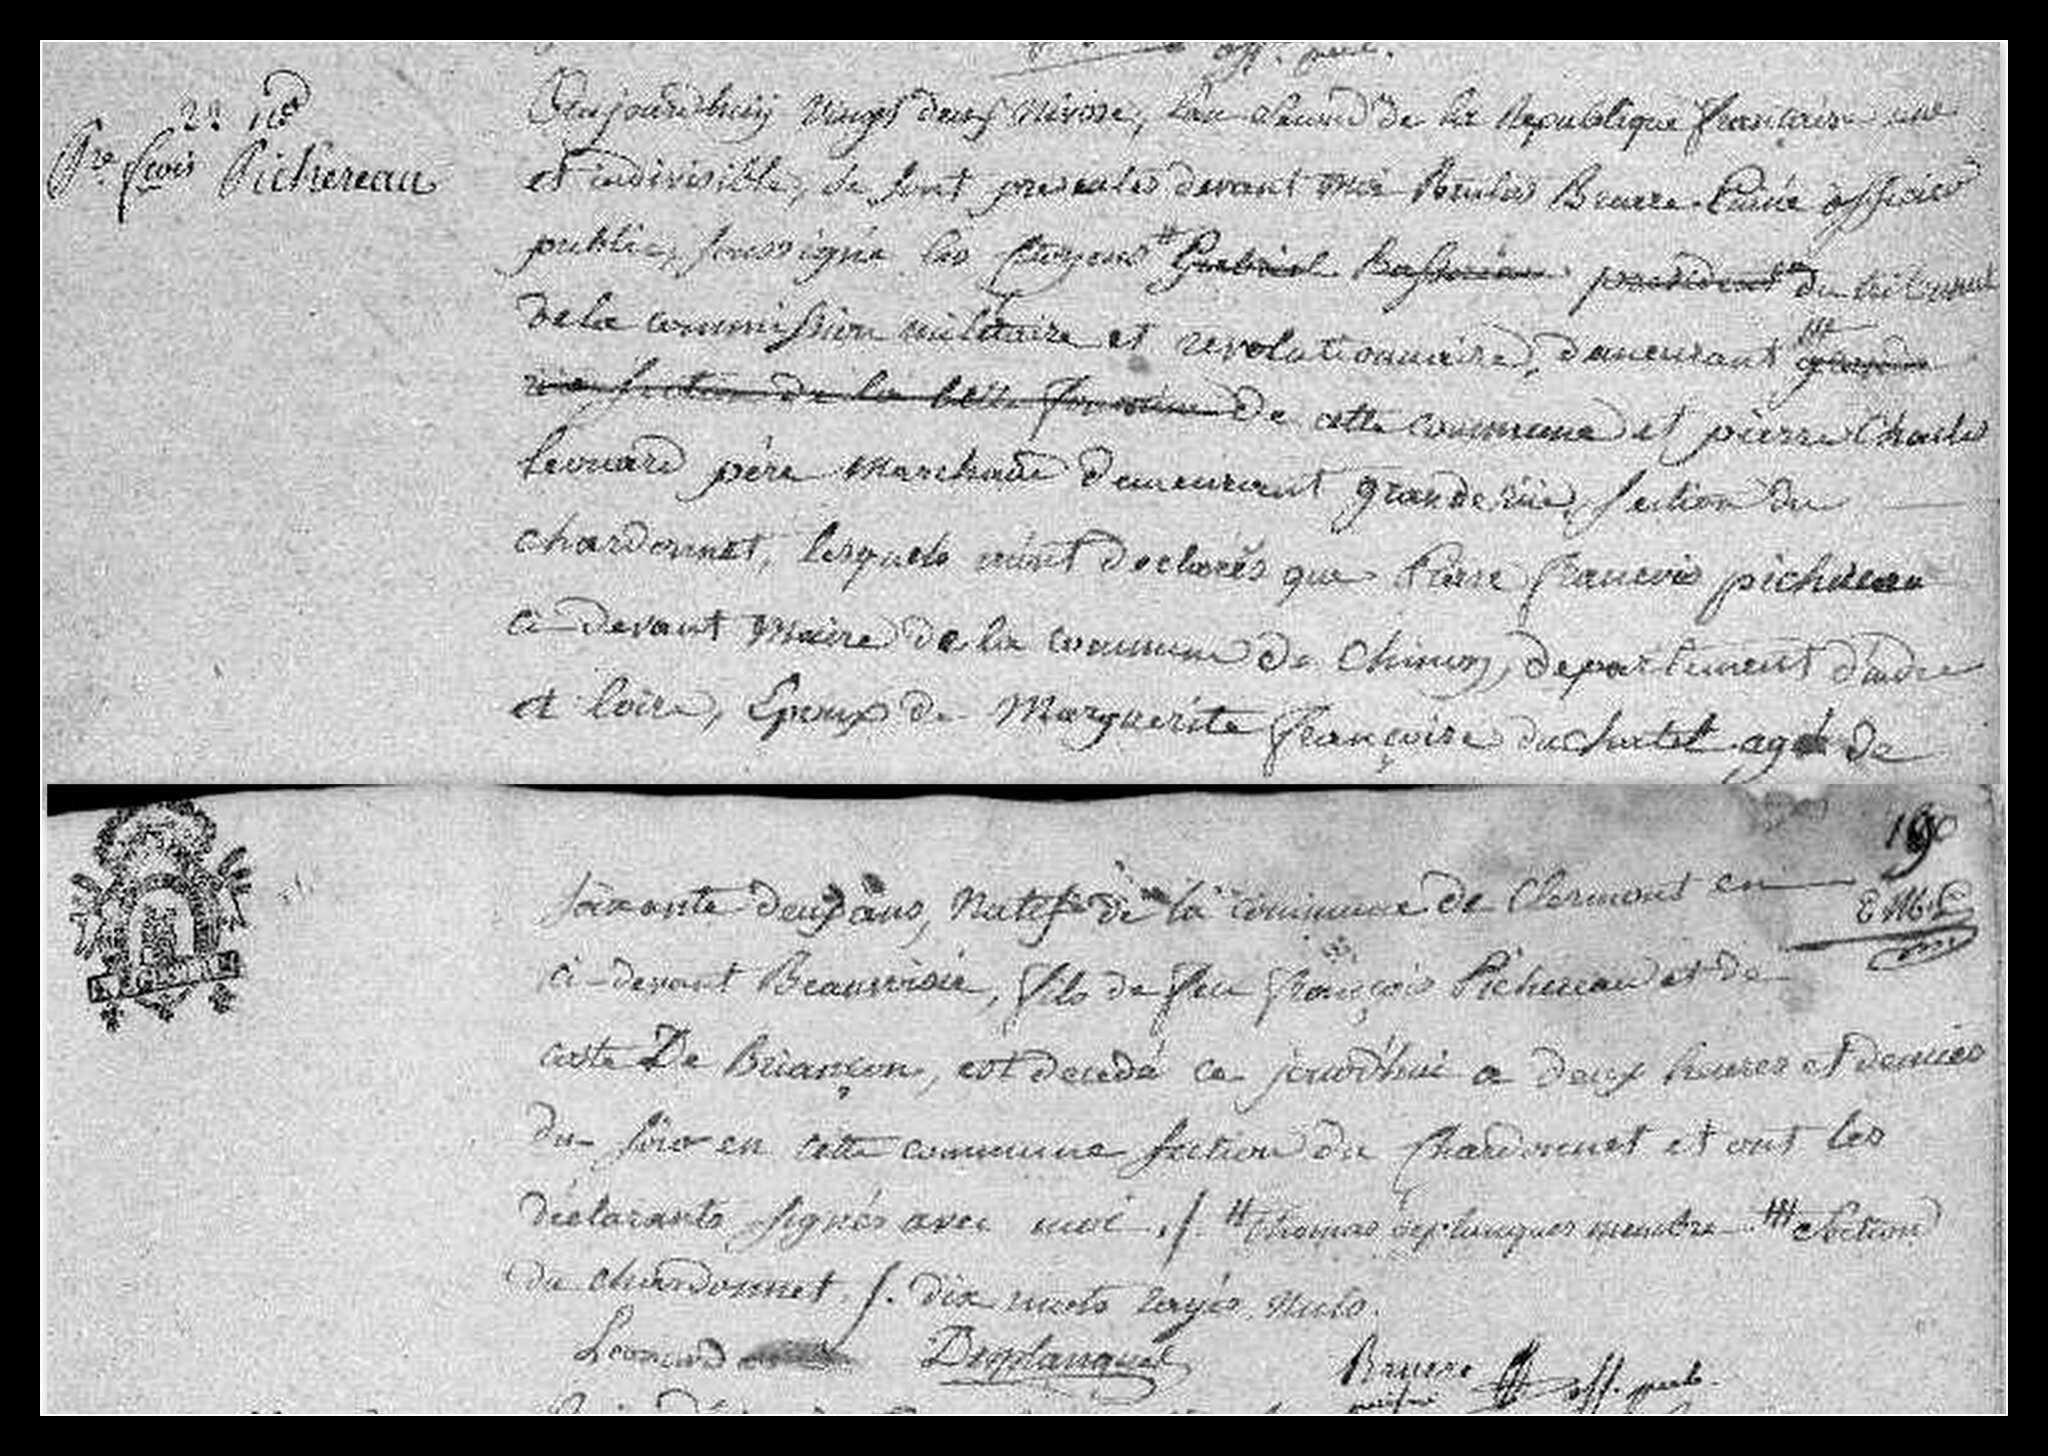 off. publ.
22 n.se
P.re f.cois Pichereau
Aujourdhuy vingt deux Nivose, l'an second de la Republique francaise une
et indivisible, se sont presentés devant moi Bruere Puiné officier
public, soussigné les Citoyens # Gabriel president du tribunal
de la commission militaire et revolutionnaire, demeurant ###
rüe section de la de cette commune et pierre Charles
Leonard père Marchand demeurant grande rüe, section du
chardonnet, lesquels m'ont declarés que Pierre francois pichereau
ci-devant Maire de la commune de Chinon, departement d'indre
et loire, Epoux de Marguerite françoise duchatel agé de
190
soixante deux ans, Natif de la commune de Clermont en
ci-devant Beauvoisie, fils de feu françois Pichereau et de
De Briançon, est decedé ce jourd'hui a deux heures et demies
du soir en cette commune section du Chardonnet et ont les
déclarants signés avec moi ./. # thomas desplanques membre ### section
du chardonnet ./. dix mots rayés nuls.
Leonard Desplanques Bruere off. pub.
puiné